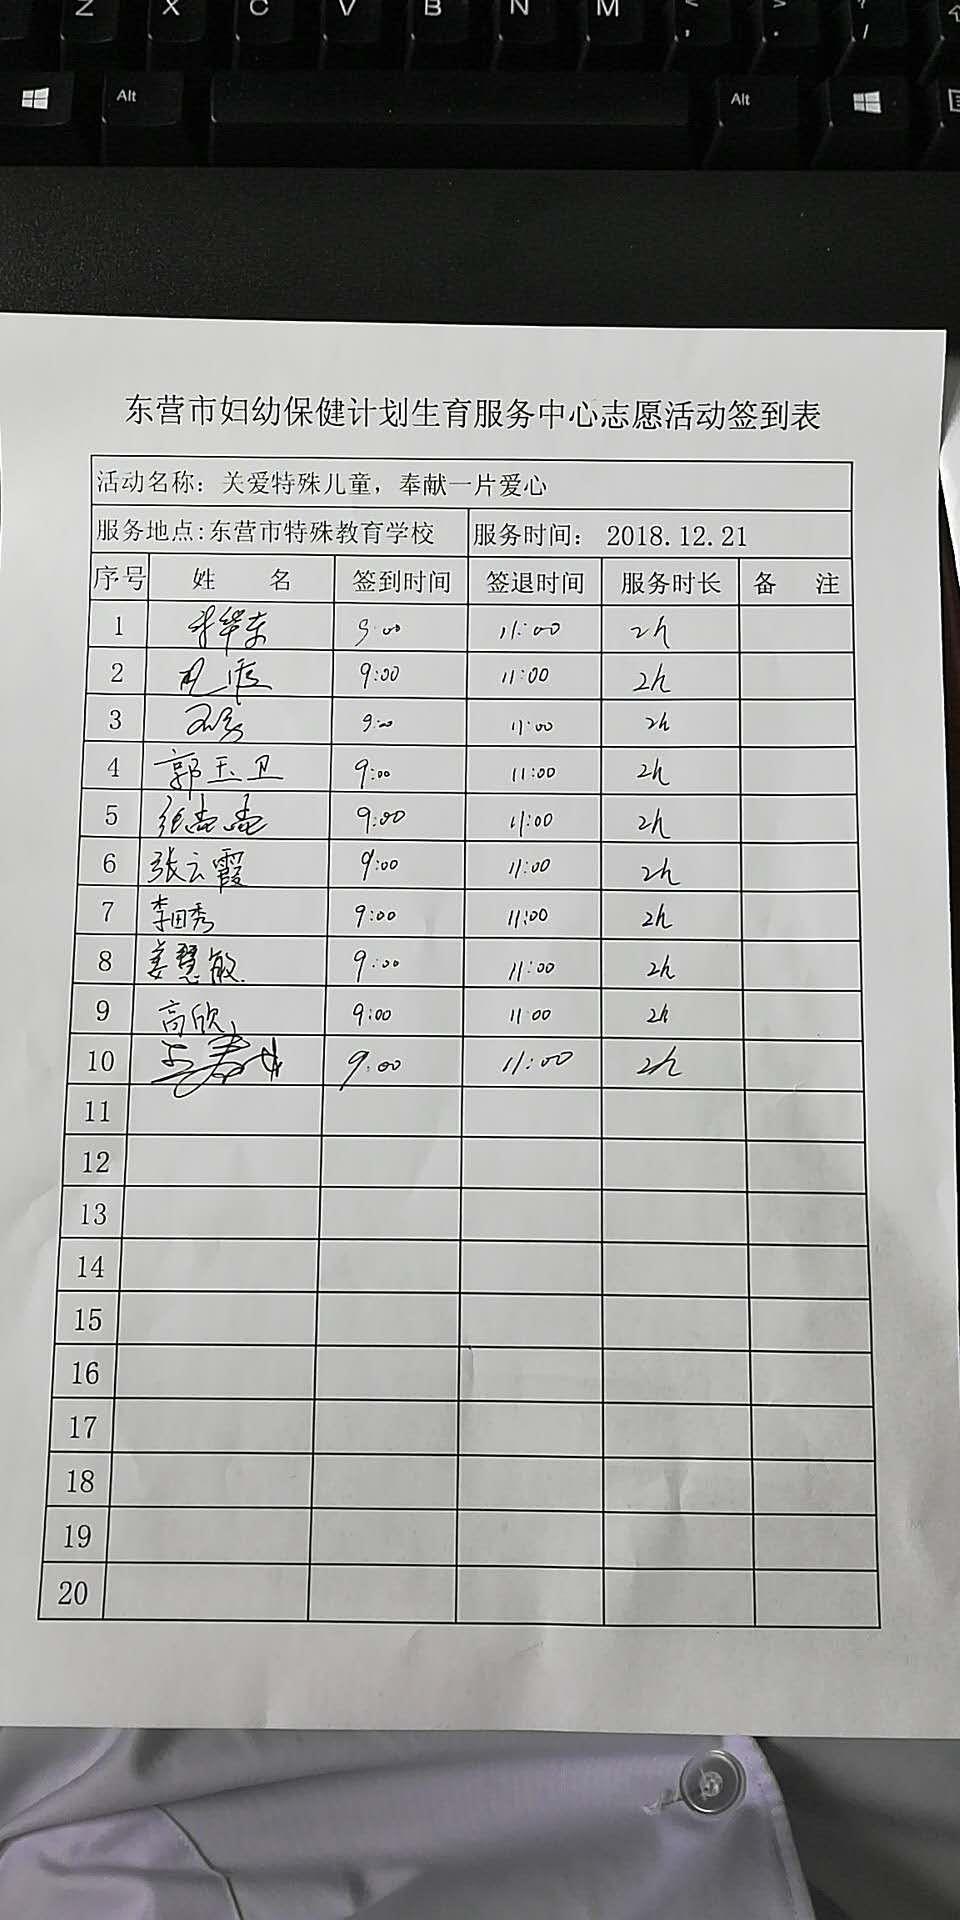 Z X C V B N M < , > . ? /
Alt Alt
东营市妇幼保健计划生育服务中心志愿活动签到表
活动名称：关爱特殊儿童，奉献一片爱心
服务地点:东营市特殊教育学校 服务时间： 2018.12.21
序号 姓 名 签到时间 签退时间 服务时长 备 注
1 9:00 11:00 2h
2 9:00 11:00 2h
3 9:00 11:00 2h
4 郭玉卫 9:00 11:00 2h
5 9:00 11:00 2h
6 张云霞 9:00 11:00 2h
7 李田秀 9:00 11:00 2h
8 姜慧敏 9:00 11:00 2h
9 高欣 9:00 11:00 2h
10 9:00 11:00 2h
11
12
13
14
15
16
17
18
19
20